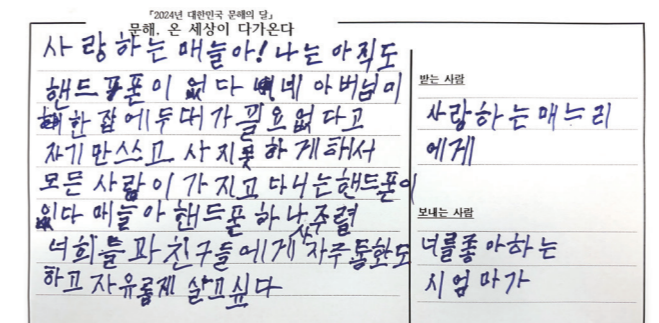 『2024년 대한민국 문해의 달』
문해, 온 세상이 다가온다
사랑하는 매늘아! 나는 아직도
핸드폰이 없다 네 아버님이
한집에 두대가 필요없다고
자기만 쓰고 사지못하게해서
모든 사람이 가지고 다니는 핸드폰이
없다 매늘아 핸드폰 하나 사주렴
너희들과 친구들에게 자주 통화도
하고 자유롭게 살고싶다
받는 사람
사랑하는 매느리
에게
보내는 사람
너를좋아하는
시엄마가